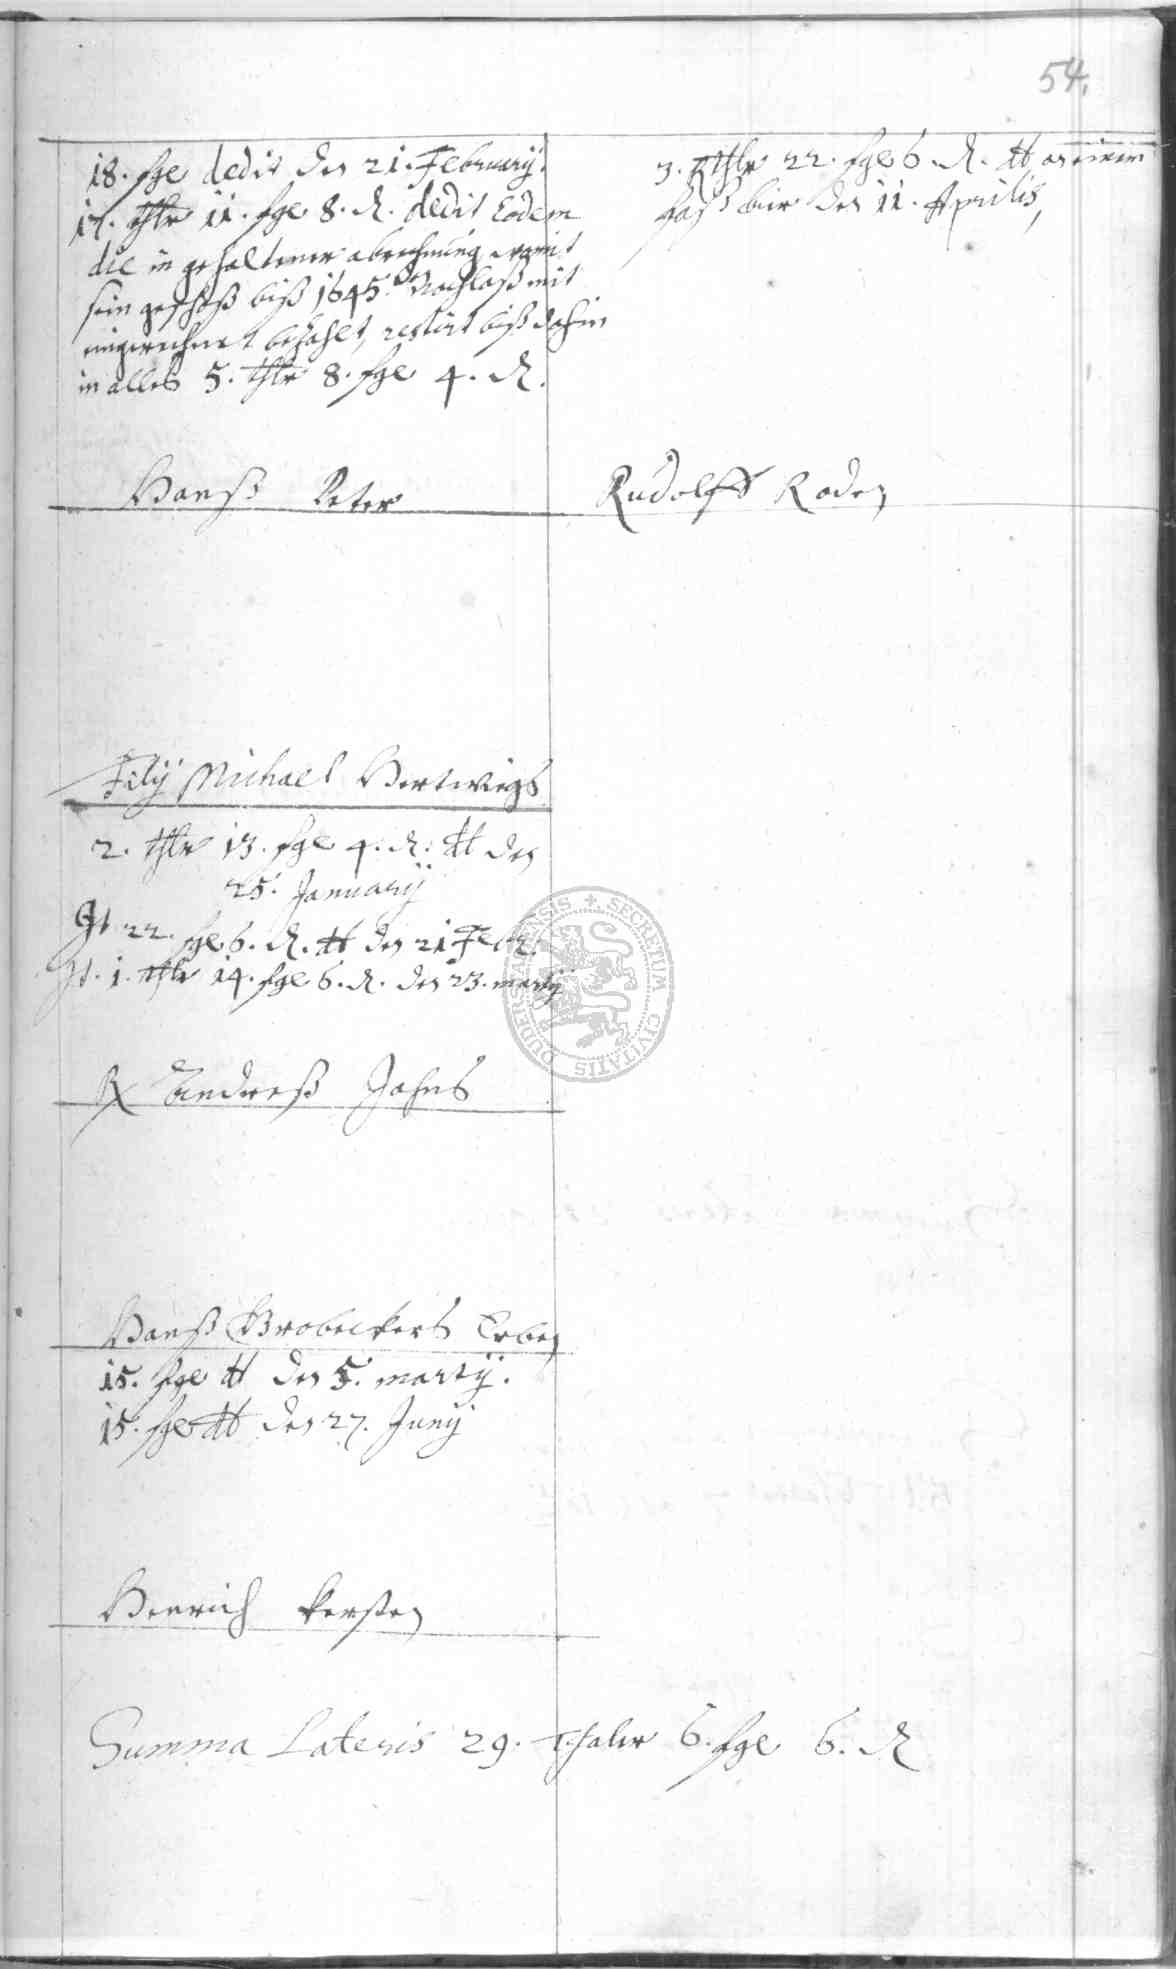 54.
18. sgl dedit den 21. February.
17. thlr 11. sgl 8. d. dedit Eodem
die in gehaltener abrechnung womit
sein geschoß biß 1645. Nachlaß mit
eingerechnet bezahlt, restirt biß dahin
in alles 5. thlr 8. sgl 4. d.
3. Rthlr 22. sgl 6. d. dt an einem
faß bier den 11. Aprilis,
Hanß Peter
Rudolff Roden
Filij Michael Hertwigs
2. thlr 13. sgl 4. d. dt den
25. January
It 22. sgl 6. d. dt den 21 Febr.
It. 1. thlr 14. sgl 6. d. den 23. martij
Andreß Jahns
Hanß Brobeckers Erben
15. sgl dt den 5. martij.
15. sgl dt den 27. Junij
Henrich Kersten
Summa Lateris 29. Thaler 6. sgl 6. d
SECRETUM CIVITATIS DUDERSTADENSIS